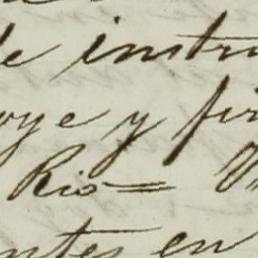 de instru
oye y fir
Rio= V
ntes en